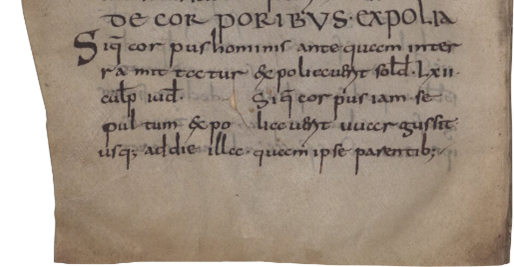 DE CORPORIBVS·EXPOLIA
Siq̄ corpus hominis ante quam inter
ra mittatur & expoliauerit solđ·Lxii·
culp̄ iud̄ Siq̄ corpus iam se
pultum & expoliauerit uuargus sit
usq; ad die illa quam ipse parentib;